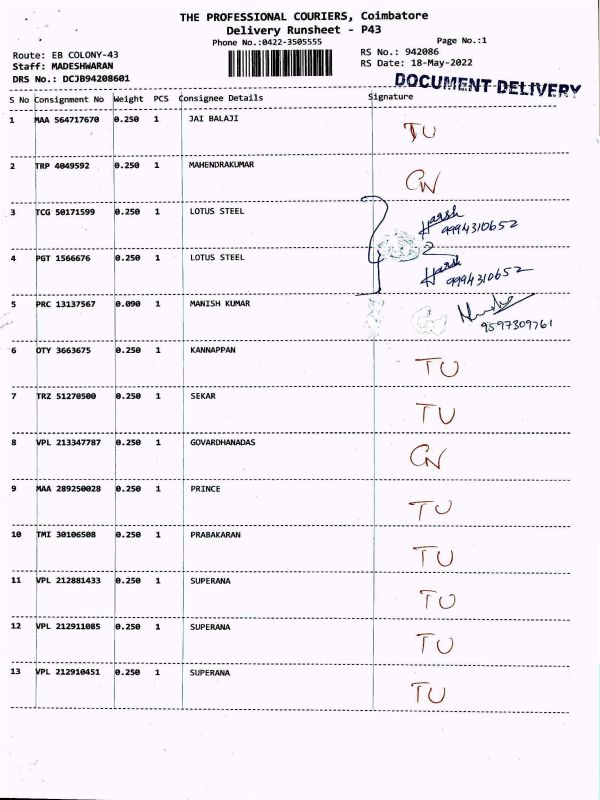 THE PROFESSIONAL COURIERS, Coimbatore
Delivery Runsheet - P43
Phone No.:0422-3505555
Page No.:1
Route: EB COLONY-43
RS No.: 942086
Staff: MADESHWARAN
RS Date: 18-May-2022
DRS No.: DCJB94208601
DOCUMENT DELIVERY
S No Consignment No Weight PCS Consignee Details Signature
1 MAA 564717670 0.250 1 JAI BALAJI TU
2 TRP 4049592 0.250 1 MAHENDRAKUMAR CN
3 TCG 50171599 0.250 1 LOTUS STEEL Harsh
9994310652
4 PGT 1566676 0.250 1 LOTUS STEEL Harsh
9994310652
5 PRC 13137567 0.090 1 MANISH KUMAR
9597309761
6 OTY 3663675 0.250 1 KANNAPPAN TU
7 TRZ 51270500 0.250 1 SEKAR TU
8 VPL 213347787 0.250 1 GOVARDHANADAS CN
9 MAA 289250028 0.250 1 PRINCE TU
10 TMI 30106508 0.250 1 PRABAKARAN TU
11 VPL 212881433 0.250 1 SUPERANA TU
12 VPL 212911085 0.250 1 SUPERANA TU
13 VPL 212910451 0.250 1 SUPERANA TU